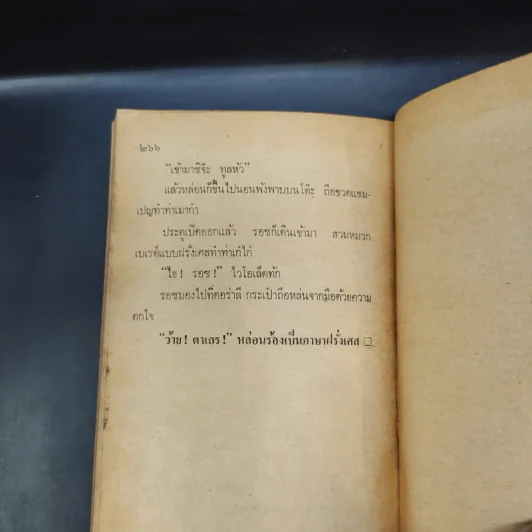 ๒๖๖
“เข้ามาซิจ๊ะ ทูลหัว”
แล้วหล่อนก็ขึ้นไปนอนพังพาบบนโต๊ะ ถือขวดแชม-
เปญทำท่าเมากำ
ประตูเปิดออกแล้ว รอซก็เดินเข้ามา สวมหมวก
เบเรต์แบบฝรั่งเศสทำท่าเก๋ไก๋
“ไฮ! รอซ!” ไวโอเล็ตทัก
รอซมองไปที่คอร่าลี กระเป๋าถือหล่นจากมือด้วยความ
ตกใจ
“ว้าย! ตาเถร!” หล่อนร้องเป็นภาษาฝรั่งเศส